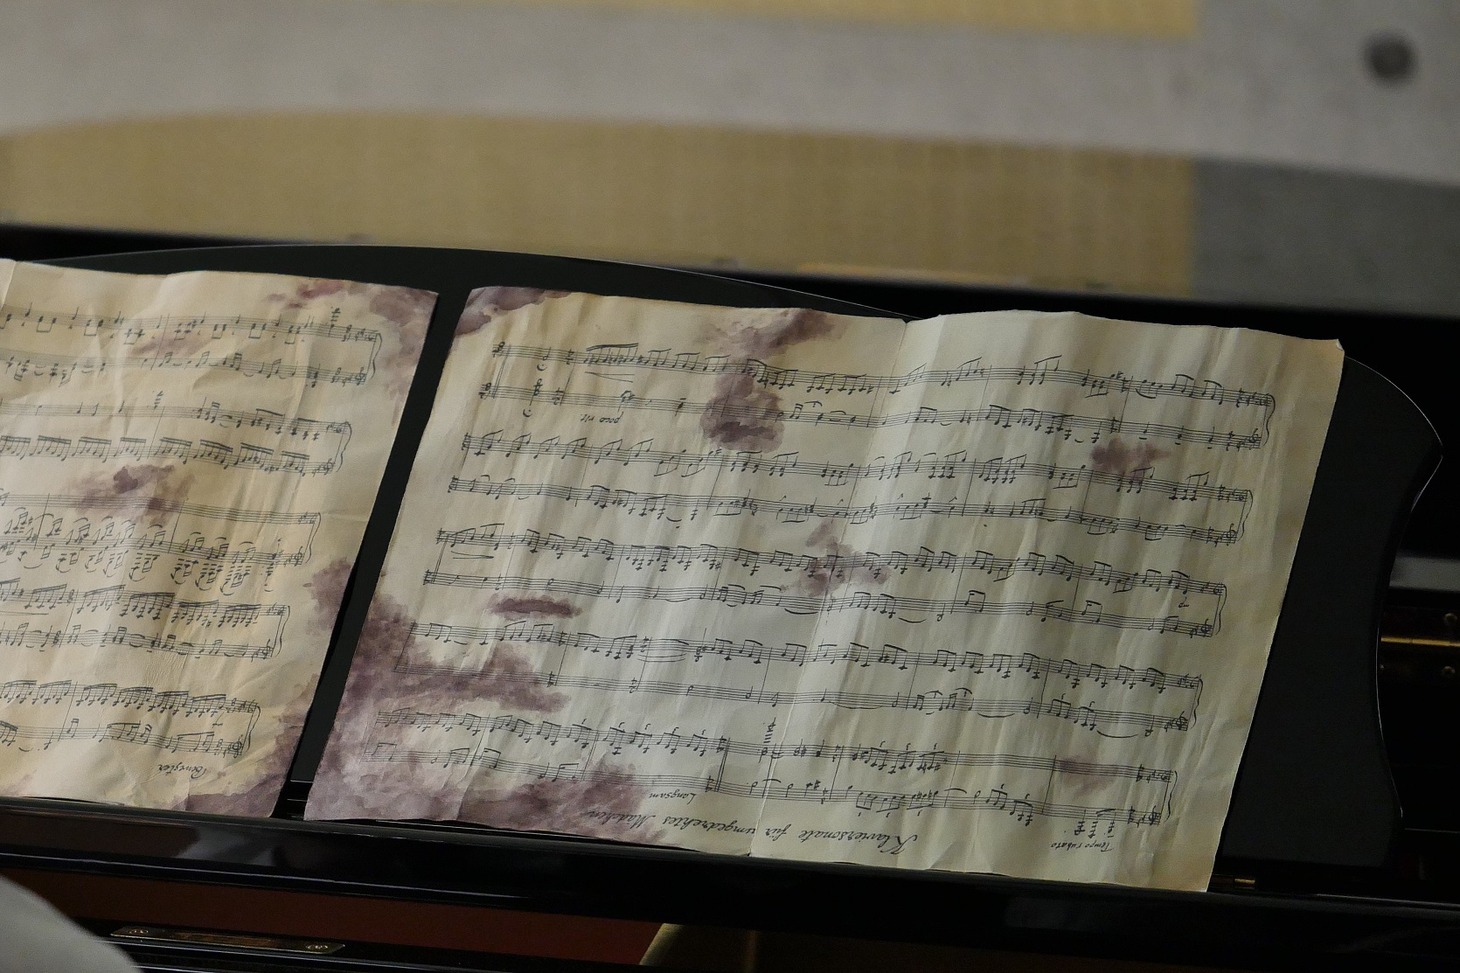 Tempo rubato
Klaviersonate für umgedrehtes Mädchen
Langsam
poco rit
Bewegter